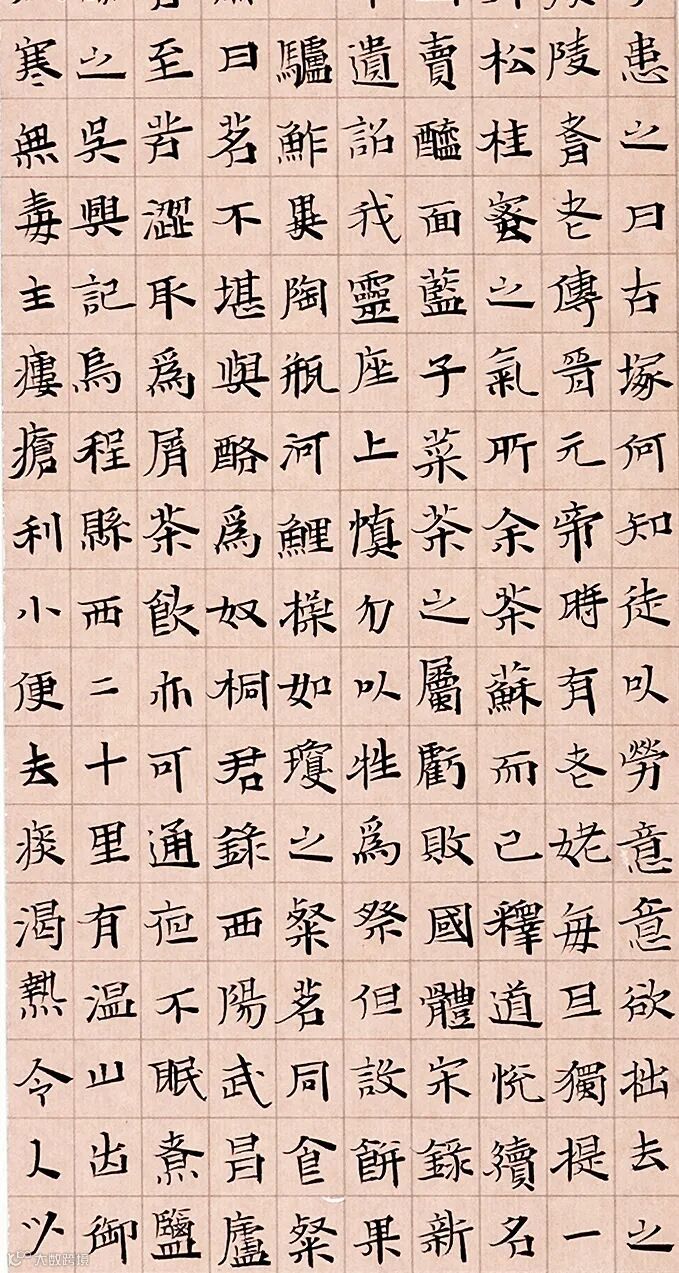 患之曰古塚何知徒以勞意意欲拙去之
陵耆老傳晉元帝時有老姥每旦獨提一
松桂蜜之氣所余茶蘇而已釋道悅續名
賣醯面藍子菜茶之屬虧敗國體宋錄新
遺詔我靈座上慎勿以牲爲祭但設餅果
驢鮓異陶瓶河鯉操如瓊之粲茗同食粲
曰茗不堪與酪爲奴桐君錄西陽武昌廬
至苦澀取爲屑茶飲亦可通夜不眠煮鹽
之吳興記烏程縣西二十里有温山出御
寒無毒主瘻瘡利小便去痰渴熱令人以
大数跨境